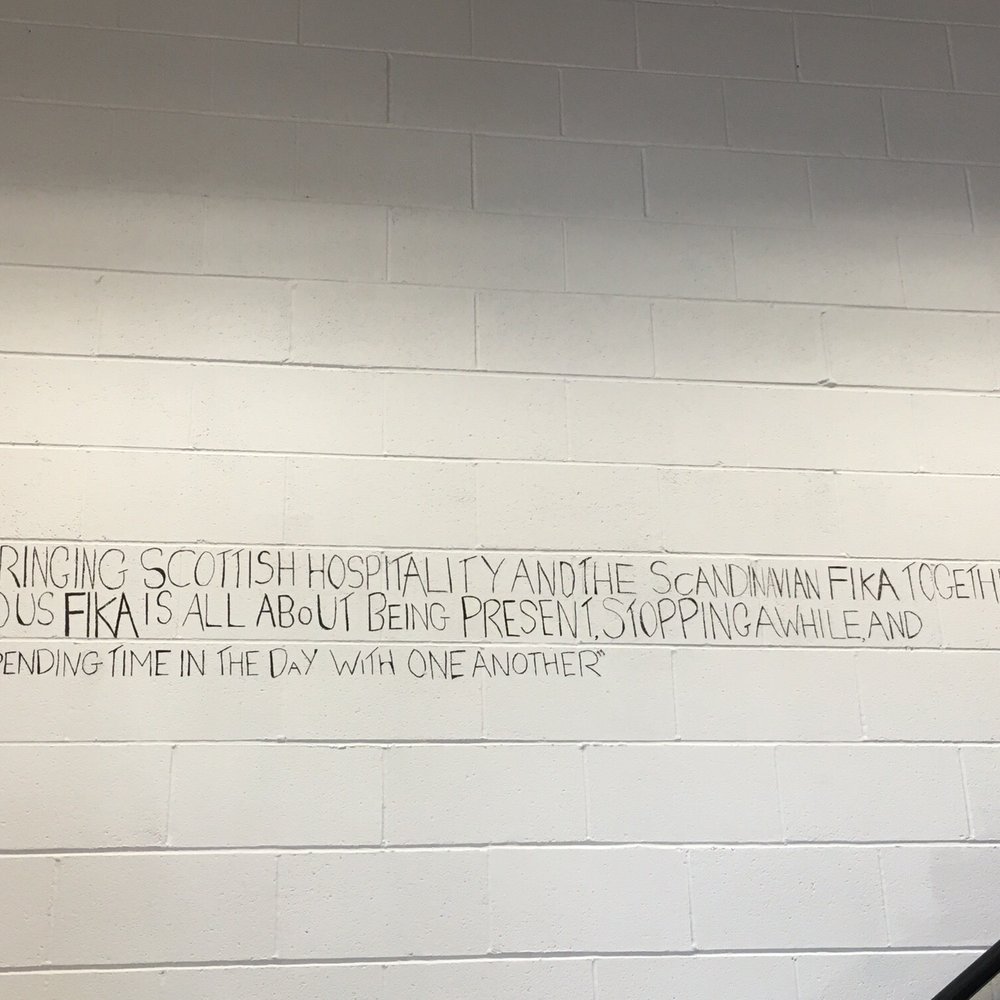 RINGING SCOTTISH HOSPITALITY AND THE SCANDINAVIAN FIKA TOGETH
O US FIKA IS ALL ABOUT BEING PRESENT, STOPPING AWHILE, AND
PENDING TIME IN THE DAY WITH ONE ANOTHER"